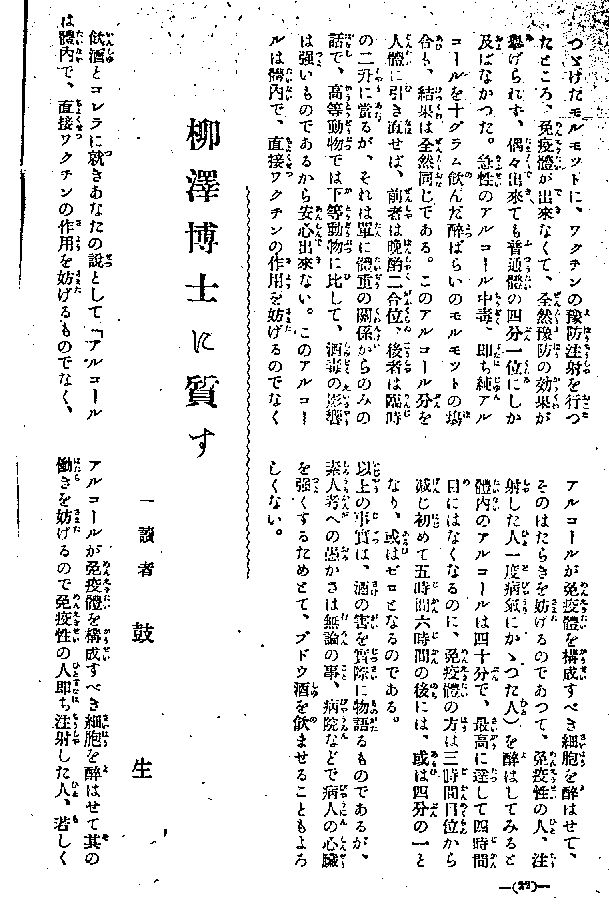 つゞけたモルモットに、ワクチンの豫防注射を行つ
たところ、免疫體が出來なくて、全然豫防の効果が
擧げられず、偶々出來ても普通體の四分一位にしか
及ばなかつた。急性のアルコール中毒、即ち純アル
コールを十グラム飲んだ醉ぱらいのモルモットの場
合も、結果は全然同じである。このアルコール分を
人體に引き直せば、前者は晩酌二合位、後者は臨時
の二升に當るが、それは單に體重の關係からのみの
話で、高等動物では下等動物に比して、酒毒の影響
は强いものであるから安心出來ない。このアルコー
ルは體內で、直接ワクチンの作用を妨げるのでなく
アルコールが免疫體を構成すべき細胞を醉はせて、
そのはたらきを妨げるのであつて、免疫性の人、注
射した人一度病氣にかゝつた人）を醉はしてみると
體內のアルコールは四十分で、最高に達して四時間
目にはなくなるのに、免疫體の方は三時間目位から
减じ初めて五時間六時間の後には、或は四分の一と
なり、或はゼロとなるのである。
以上の事實は、酒の害を實際に物語るものであるが、
素人考への愚かさは無論の事、病院などで病人の心臟
を强くするためとて、ブドウ酒を飲ませることもよろ
しくない。
柳澤博士に質す
一讀者 鼓生
飲酒とコレラに就きあなたの說として「アルコール
は體內で、直接ワクチンの作用を妨げるものでなく、
アルコールが免疫體を構成すべき細胞を醉はせて其の
働きを妨げるので免疫性の人即ち注射した人、若しく
—(22)—